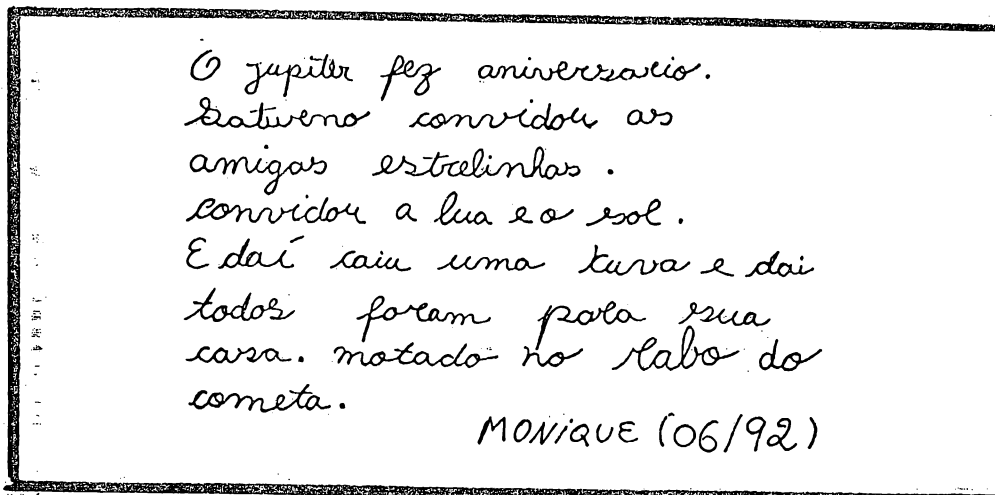 O jupiter fez aniversario.
Saturno convidou as
amigas estrelinhas.
convidou a lua e o sol.
E daí caiu uma xuva e dai
todos foram para sua
casa. motado no rabo do
cometa.
MONiQUE (06/92)